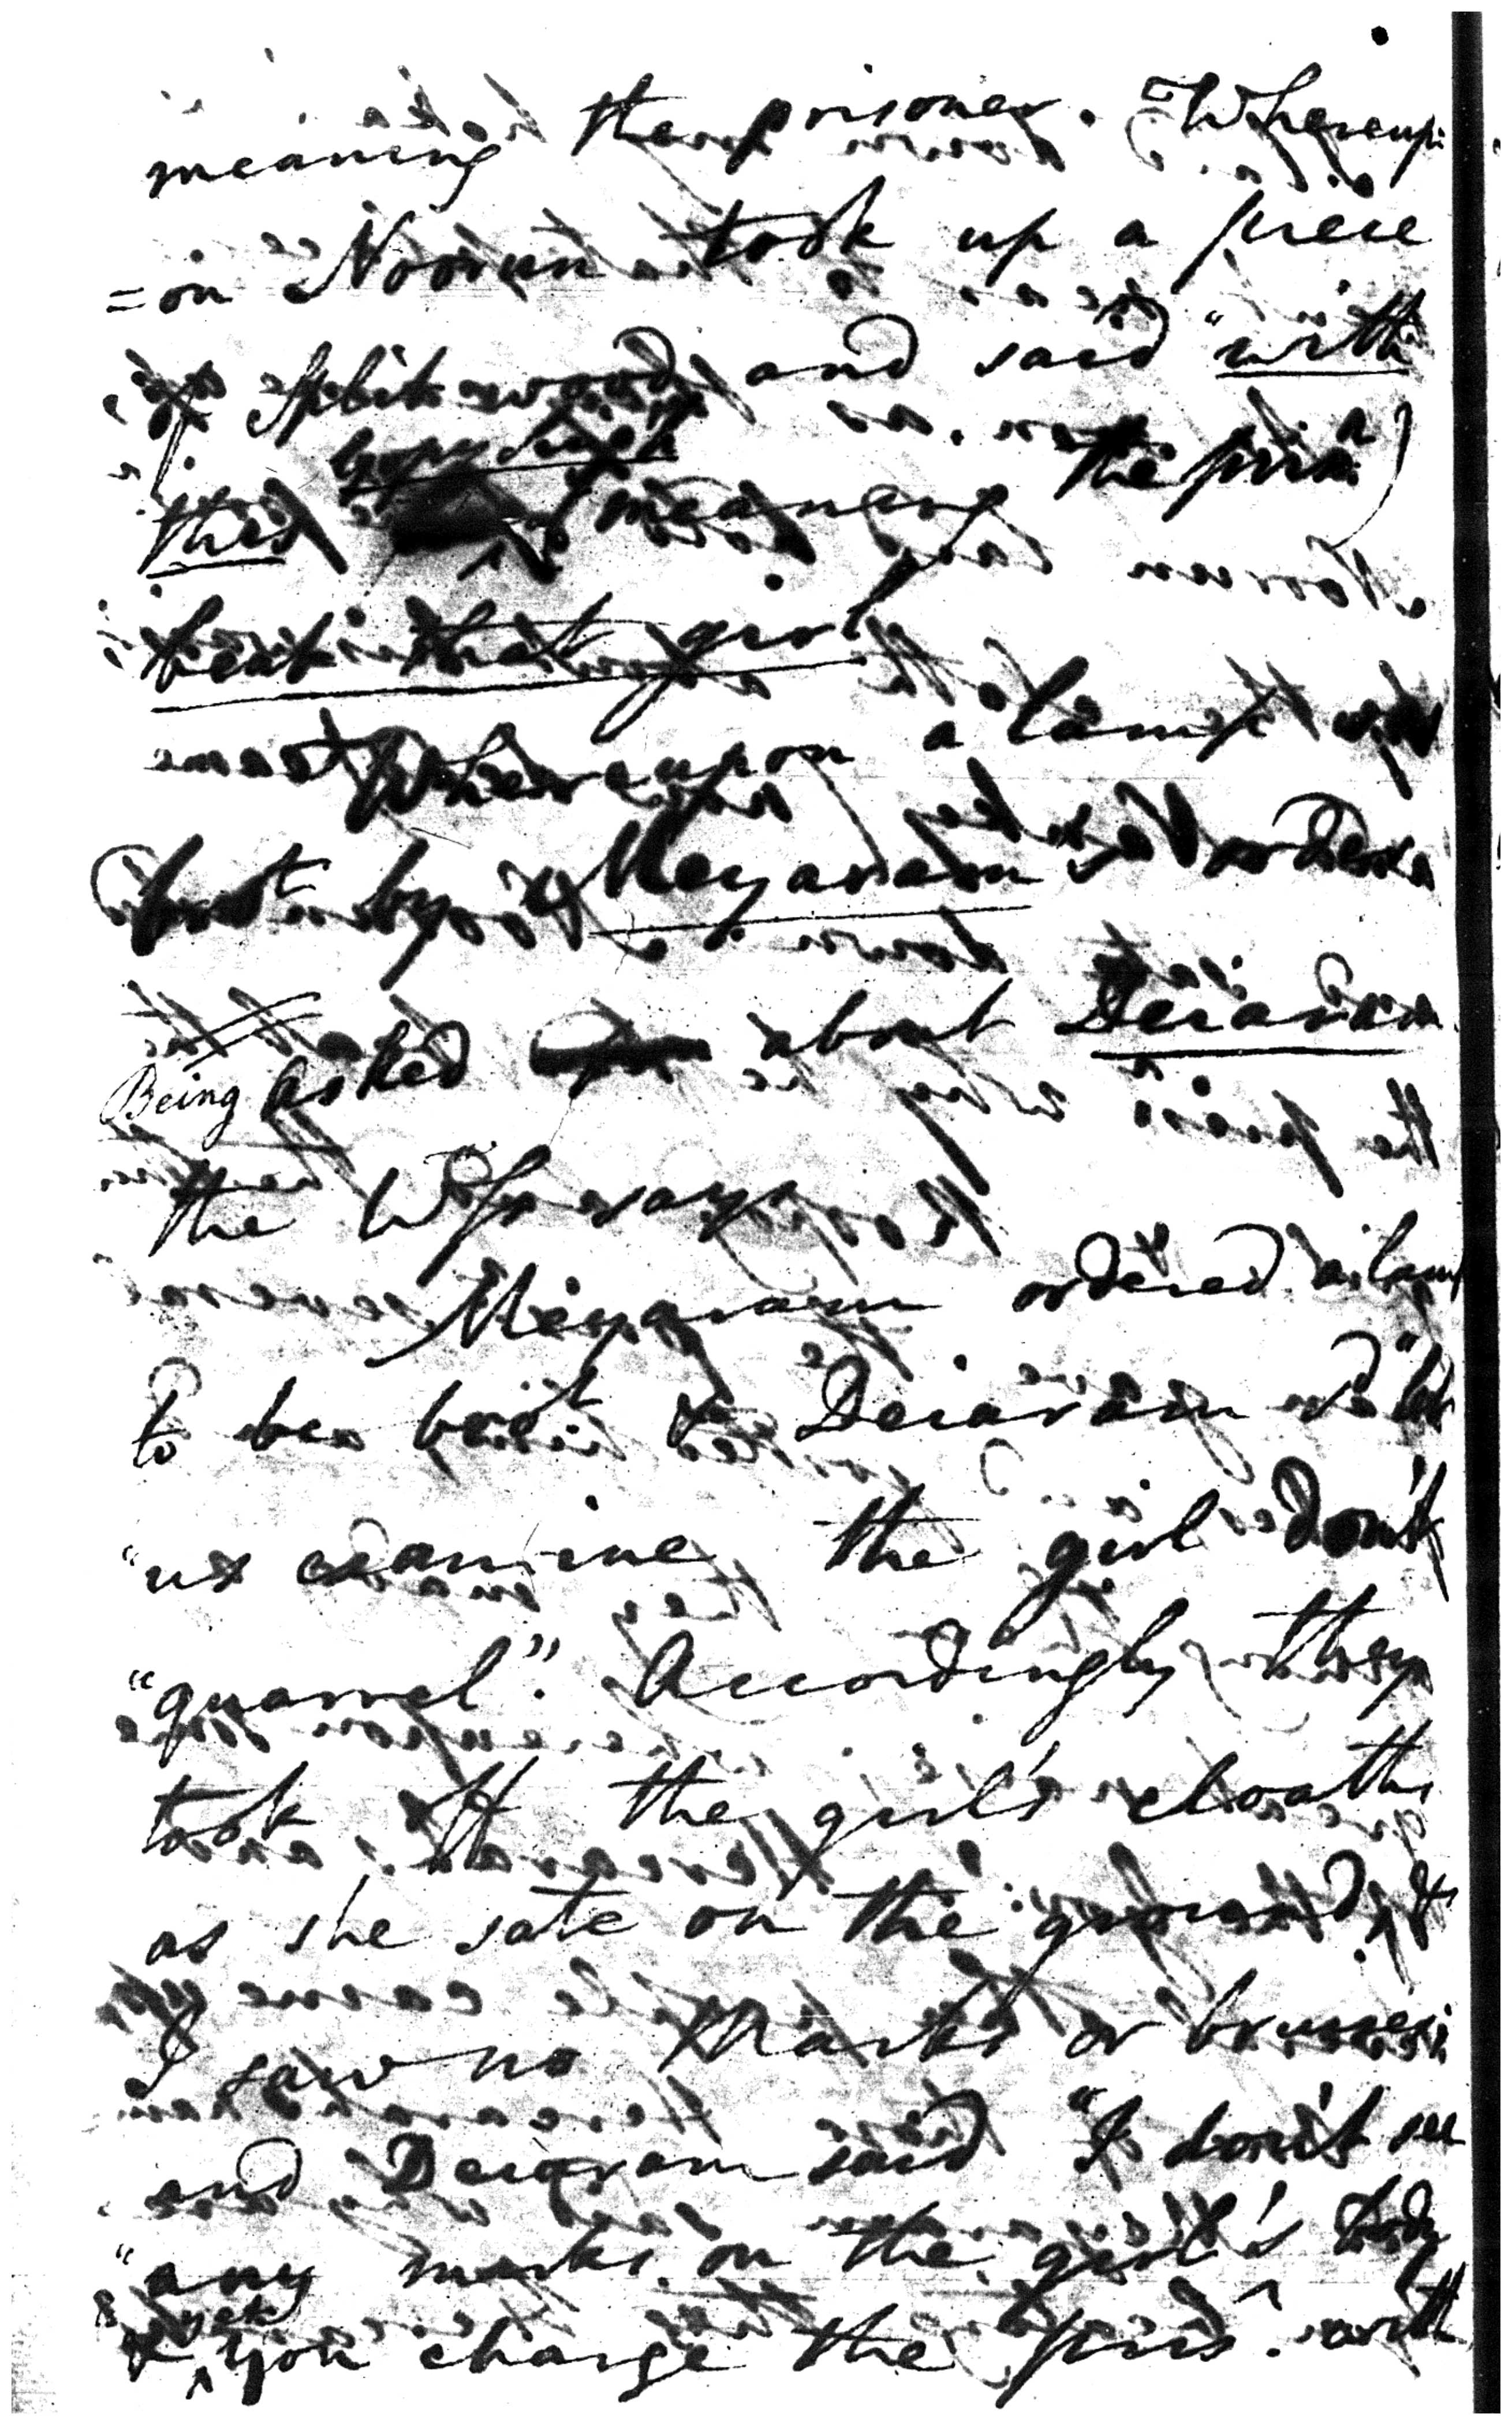 meaning the prisoner. Whereup
=on Noorun took up a piece
of split wood and said "with
this (meaning the prisr)
beat that girl
Whereupon a lamp was
brot by Meyaram's order
Being asked about Deiaram
the Wss says
Meyaram ordered a lamp
to be brot to Deiaram "let
"us examine the girl don't
"quarrel". Accordingly they
took off the girl's cloaths
as she sate on the ground, &
I saw no marks or bruises
and Deiaram said "I don't see
"any marks on the girl's body
& yet you charge the prisr with